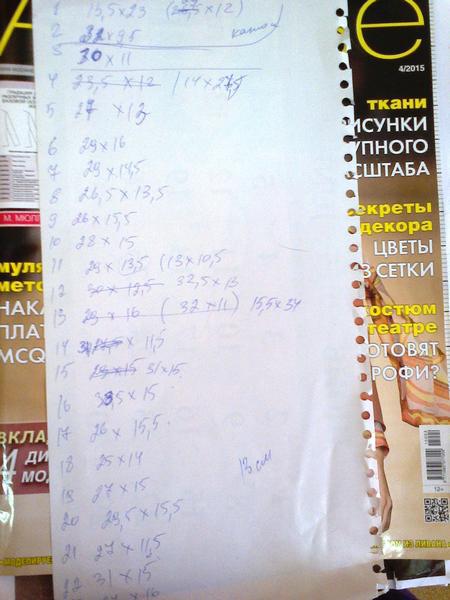 1 13,5 x 23 ( x 12)
2 32 x 9,5 капюш
3 30 x 11
4 23,5 x 12 | 14 x 27,5
5 27 x 12
6 29 x 16
7 29 x 14,5
8 26,5 x 13,5
9 26 x 15,5
10 28 x 15
11 29 x 13,5 (13 x 10,5
12 30 x 12,5 32,5 x 13
13 29 x 16 ( 32 x 11) 15,5 x 34
14 x 11,5
15 29 x 15 31 x 15
16 33,5 x 15
17 26 x 15,5
18 25 x 14
19 27 x 15
20 29,5 x 15,5
21 27 x 11,5
22 31 x 15
13 см
e
4/2015
ткани
РИСУНКИ
УПНОГО
СШТАБА
екреты
декора
ЦВЕТЫ
ИЗ СЕТКИ
костюм
театре
ОТОВЯТ
РОФИ?
12+
М. МЮЛЛ
муля
мето
НАКА
ПЛАТ
MCQ
ВКЛАД
ДИ
МОД
•МОДЕЛИРУЕ
ИЗ ЛИВАНА